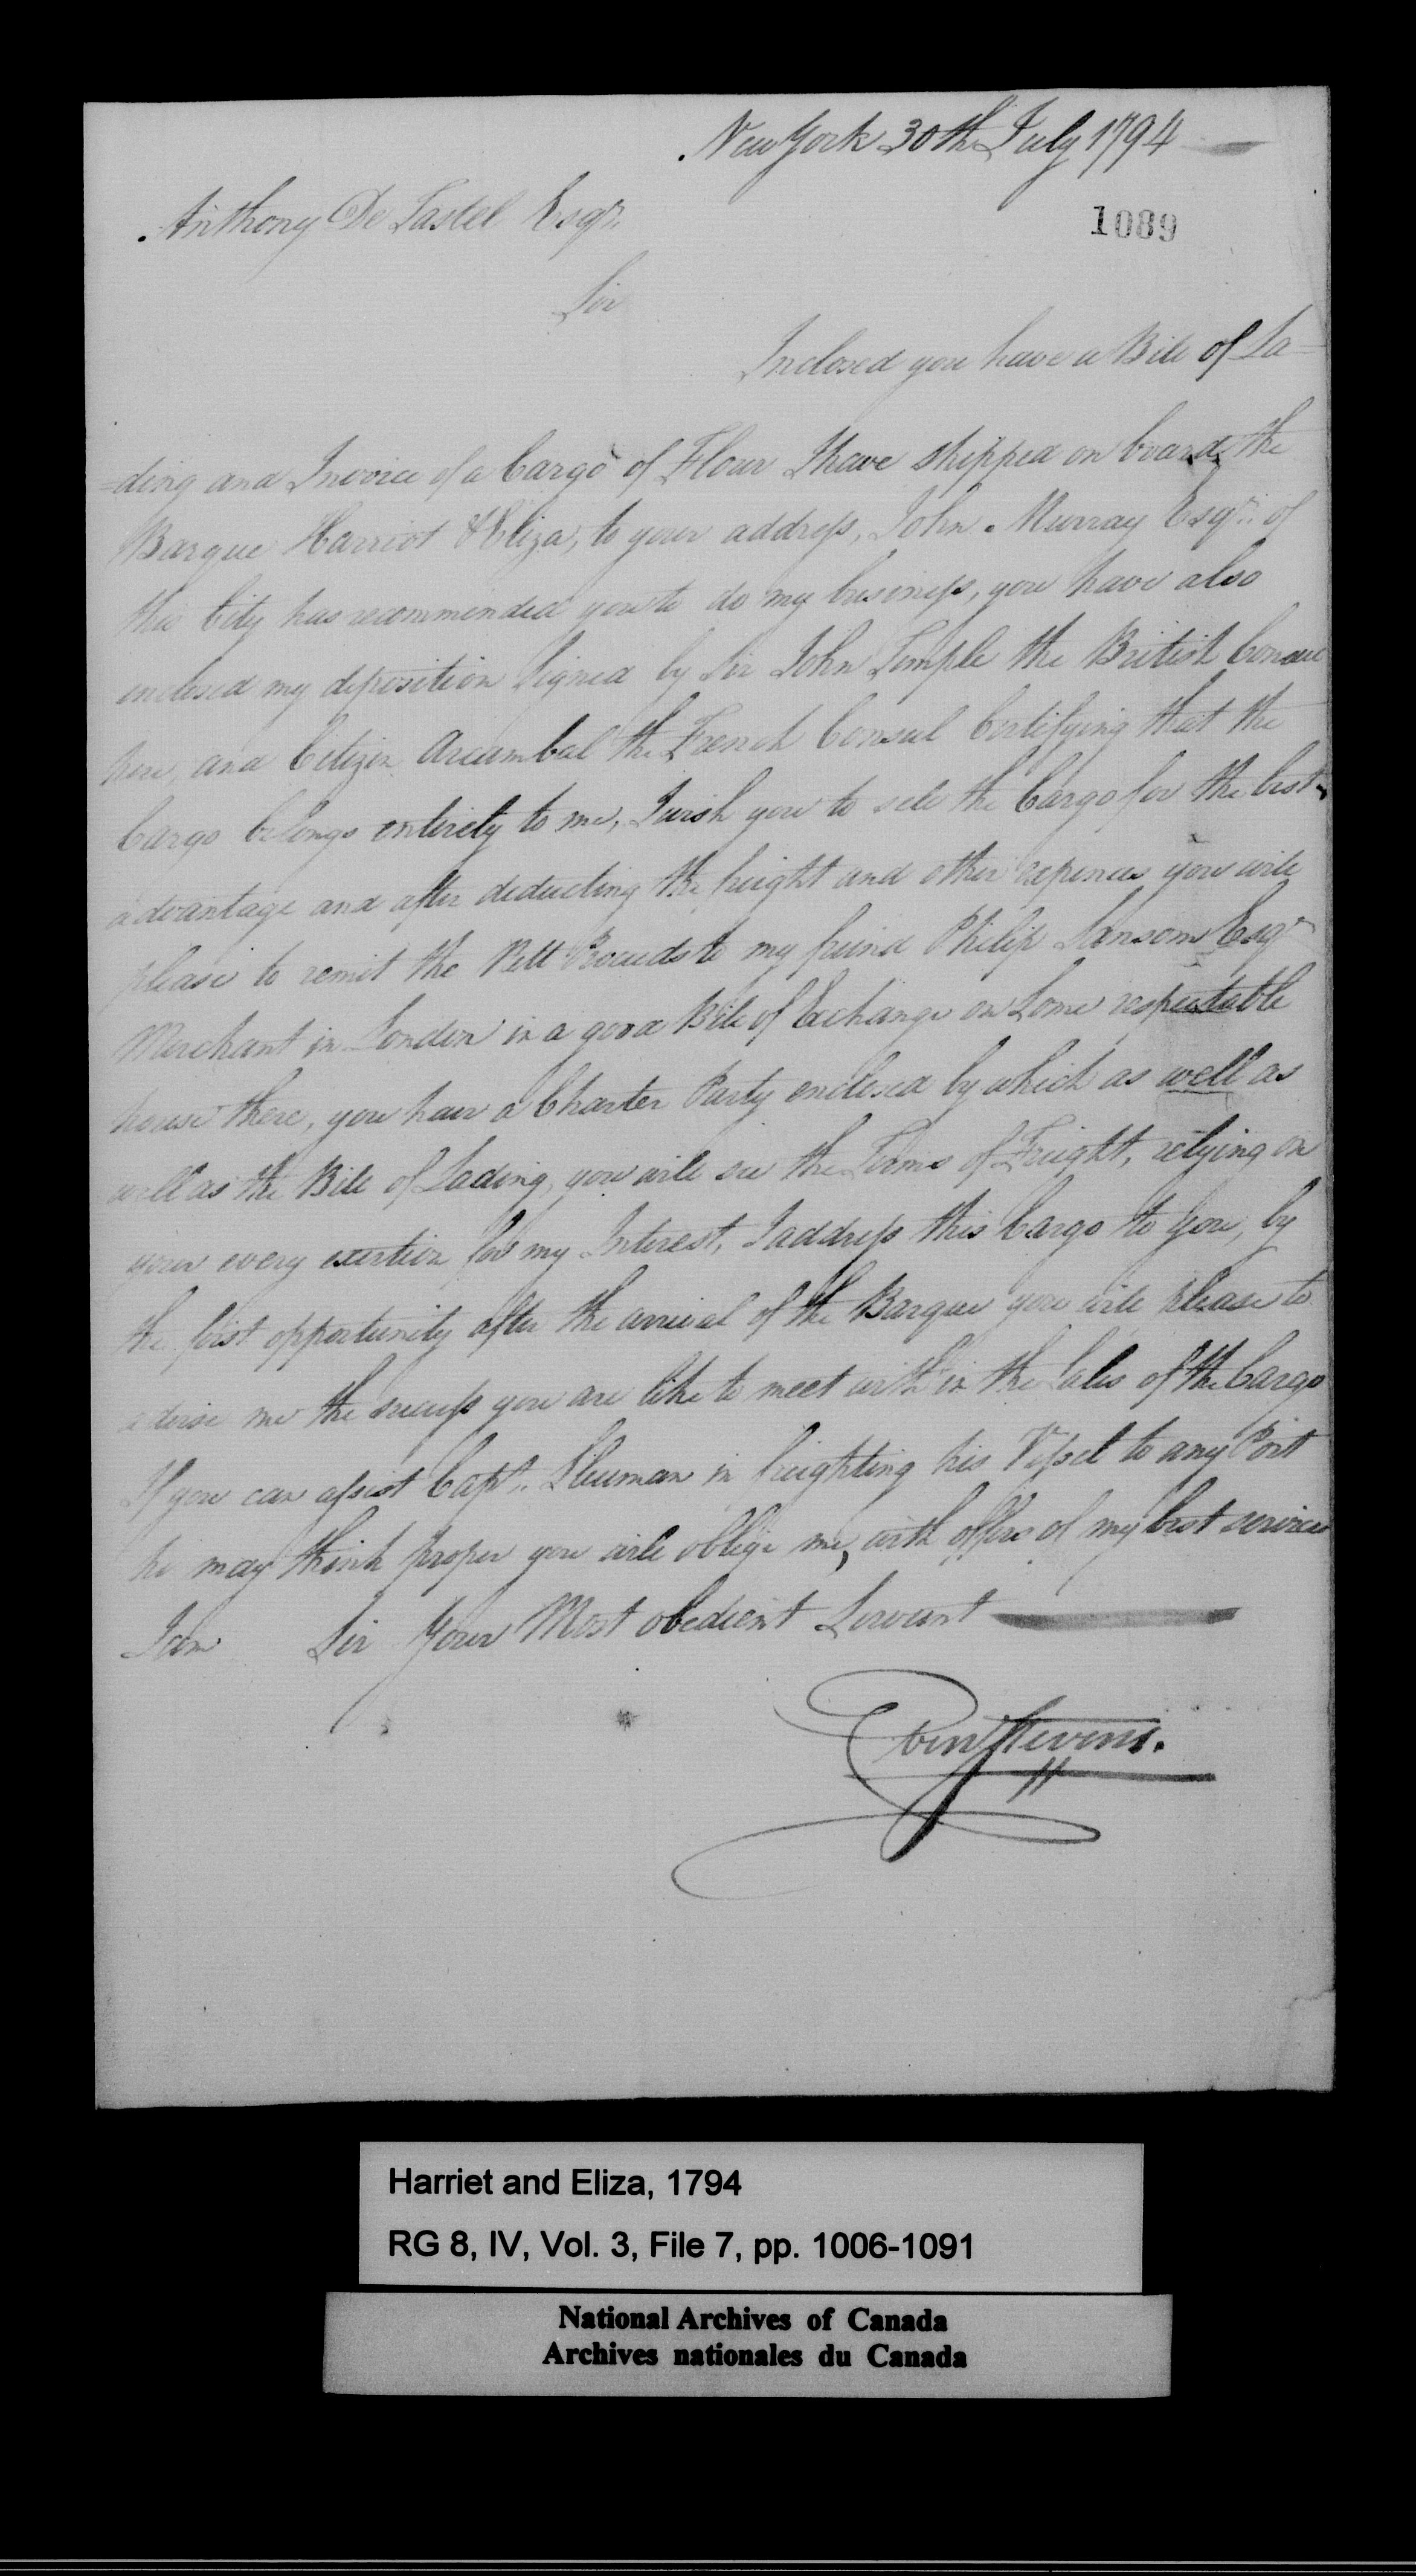 New York 30th July 1794
1089
Anthony De Lastel Esqr.
Sir
Inclosed you have a Bill of La-
=ding and Invoice of a Cargo of Flour I have shipped on board the
Barque Harriot & Eliza, to your address, John Murray Esqr. of
this City has recommended you to do my business, you have also
enclosed my deposition Signed by Sir John Temple the British Consul
here, and Citizen Arcambal the French Consul Certifying that the
Cargo belongs entirely to me, I wish you to sell the Cargo for the best
advantage and after deducting the freight and other expences you will
please to remit the Nett Proceeds to my friend Philip Sansom Esqr
Merchant in London in a good Bill of Exchange on Some respectable
house there, you have a Charter Party enclosed by which as well as
well as the Bill of Lading, you will see the Terms of Freight, relying on
your every exertion for my Interest, I address this Cargo to you, by
the first opportunity after the arrival of the Barque you will please to
advise me the success you are like to meet with in the Sales of the Cargo
If you can assist Capt. Sleuman in freighting his Vessel to any Port
he may think proper you will oblige me, with offers of my best services
I am Sir Your Most obedient Servant
Eben Stevens.
Harriet and Eliza, 1794
RG 8, IV, Vol. 3, File 7, pp. 1006-1091
National Archives of Canada
Archives nationales du Canada